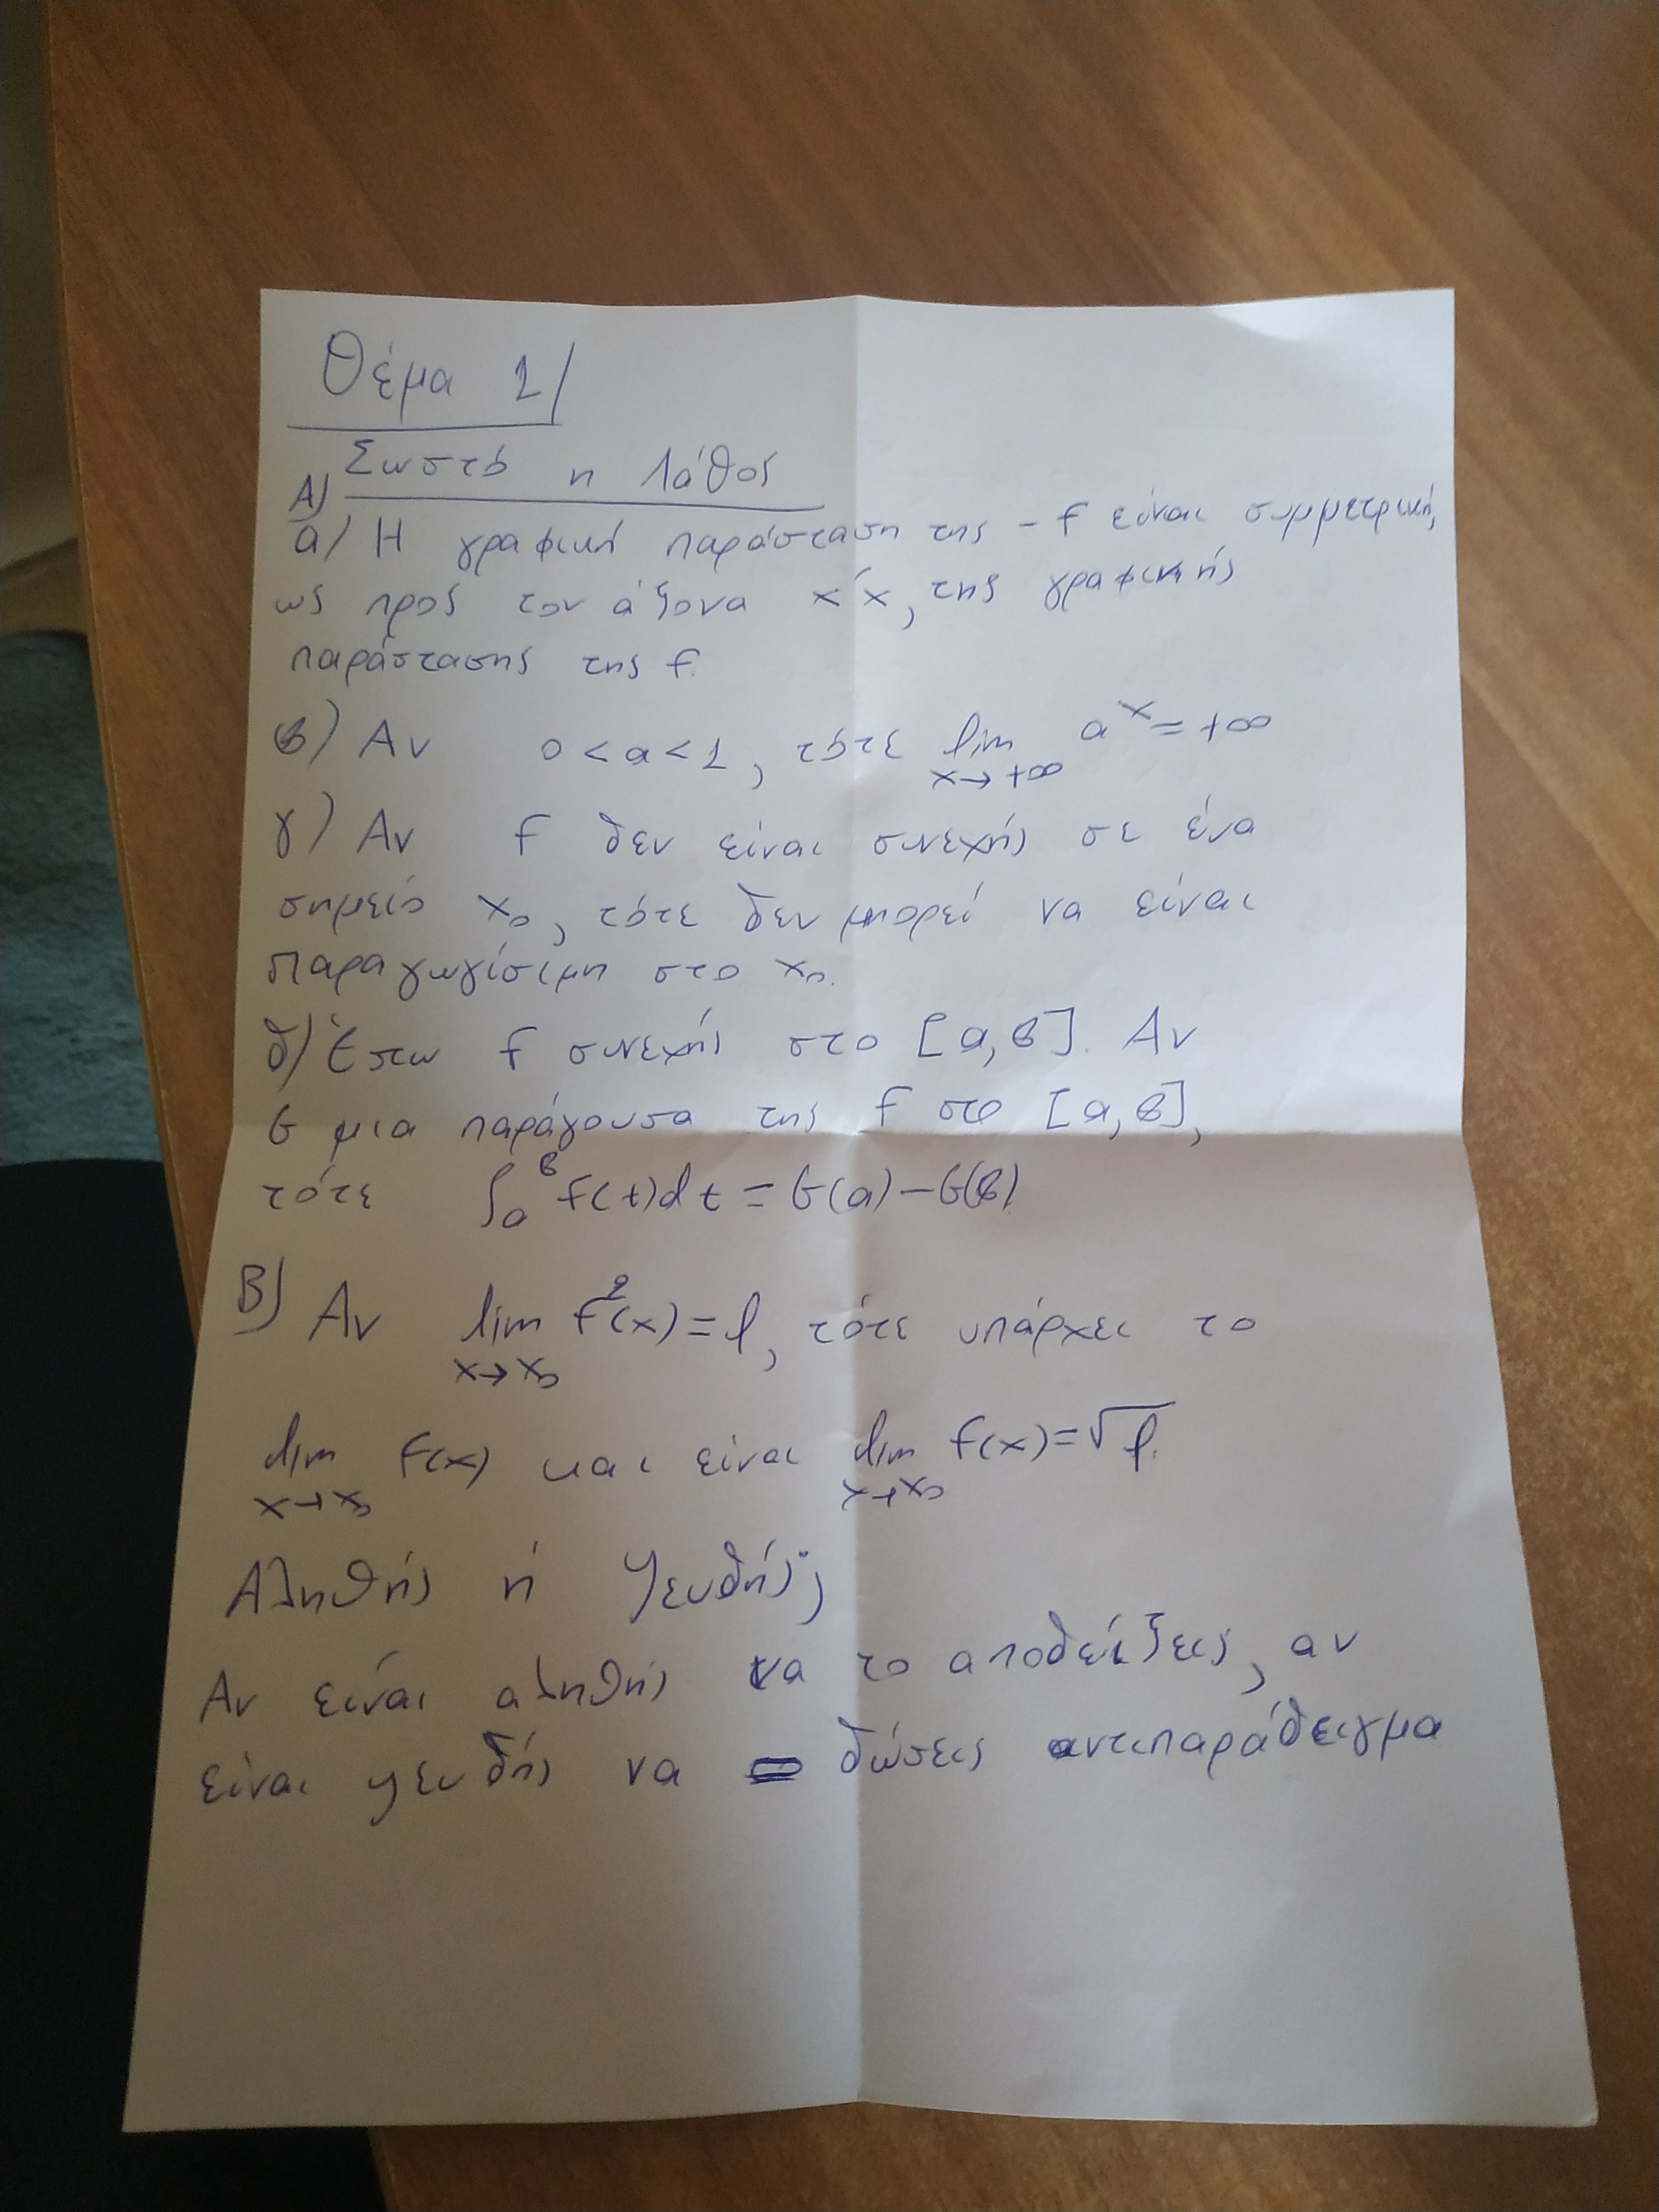 Θέμα 1/
Α) Σωστό η Λάθος
α) Η γραφική παράσταση της -f είναι συμμετρική,
ως προς τον άξονα x'x, της γραφικής
παράστασης της f.
β) Αν 0<α<1, τότε lim x→+∞ α^x=+∞
γ) Αν f δεν είναι συνεχής σε ένα
σημείο x₀, τότε δεν μπορεί να είναι
παραγωγίσιμη στο x₀.
δ) Έστω f συνεχής στο [α,β]. Αν
G μια παράγουσα της f στο [α,β],
τότε ∫_α^β f(t)dt=G(α)-G(β)
Β) Αν lim x→x₀ f²(x)=l, τότε υπάρχει το
lim x→x₀ f(x) και είναι lim x→x₀ f(x)=√l.
Αληθής ή Ψευδής;
Αν είναι αληθής να το αποδείξεις, αν
είναι ψευδής να δώσεις αντιπαράδειγμα